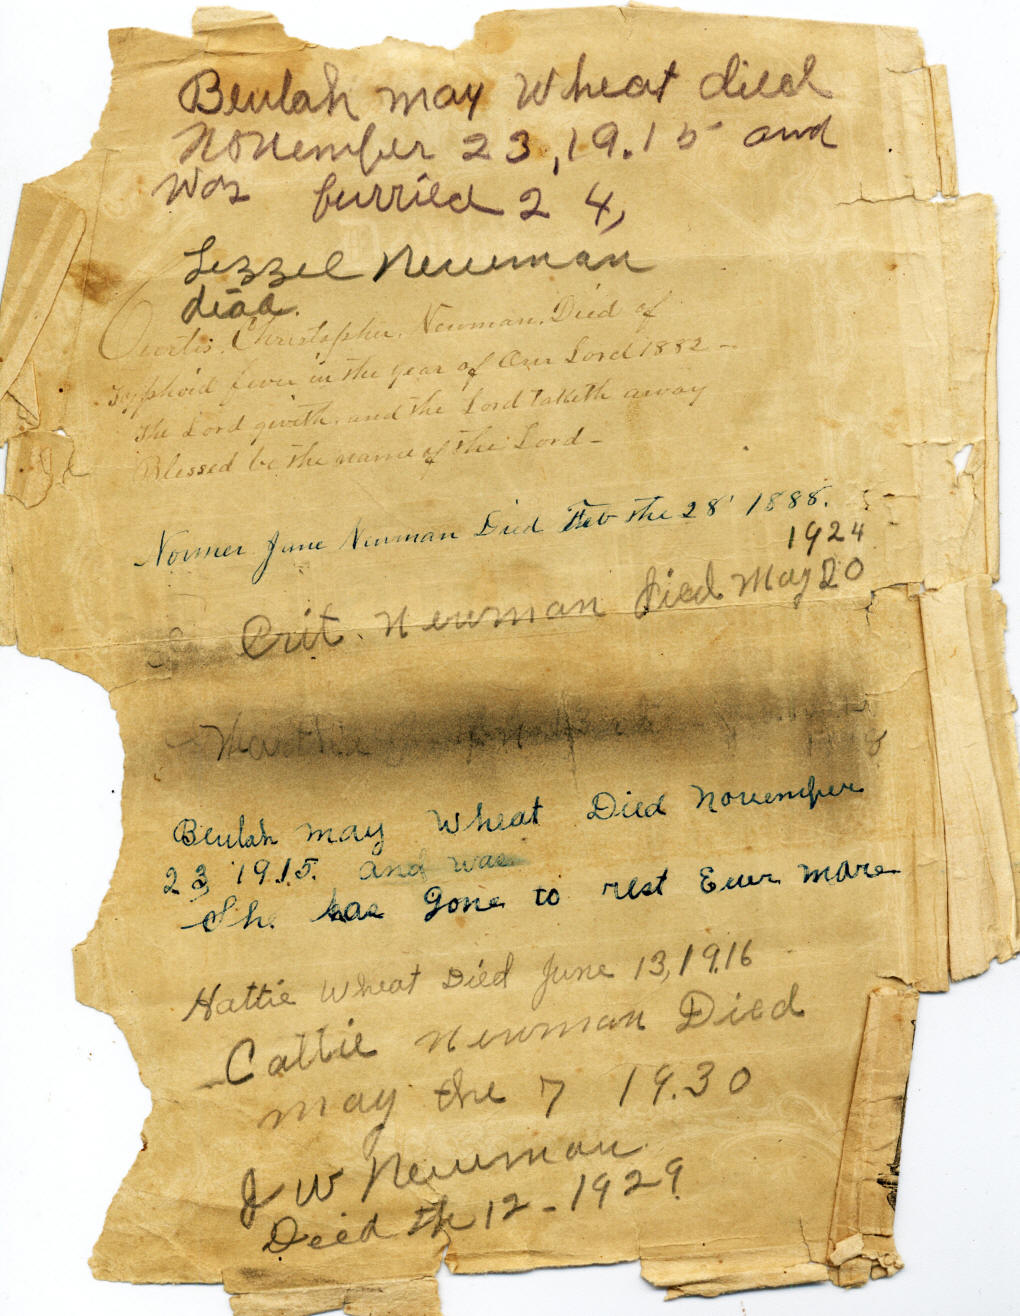 Beulah may Wheat died
November 23, 19.15 and
Was burried 24,
Lezzel Newman
died.
Curtis. Christopher. Newman. Died of
Typhoid fever in the year of Our Lord 1882 -
The Lord giveth. and the Lord taketh away
Blessed be the name of the Lord -
Normer Jane Newman Died Feb the 28' 1888.
1924
Crit. Newman Died May 20
Martha
Beulah may Wheat Died November
23, 1915. and was
She. has gone to rest Ever more
Hattie Wheat Died June 13, 1916
Callie Newman Died
may the 7 19.30
J W Newman
Died the 12 - 1929